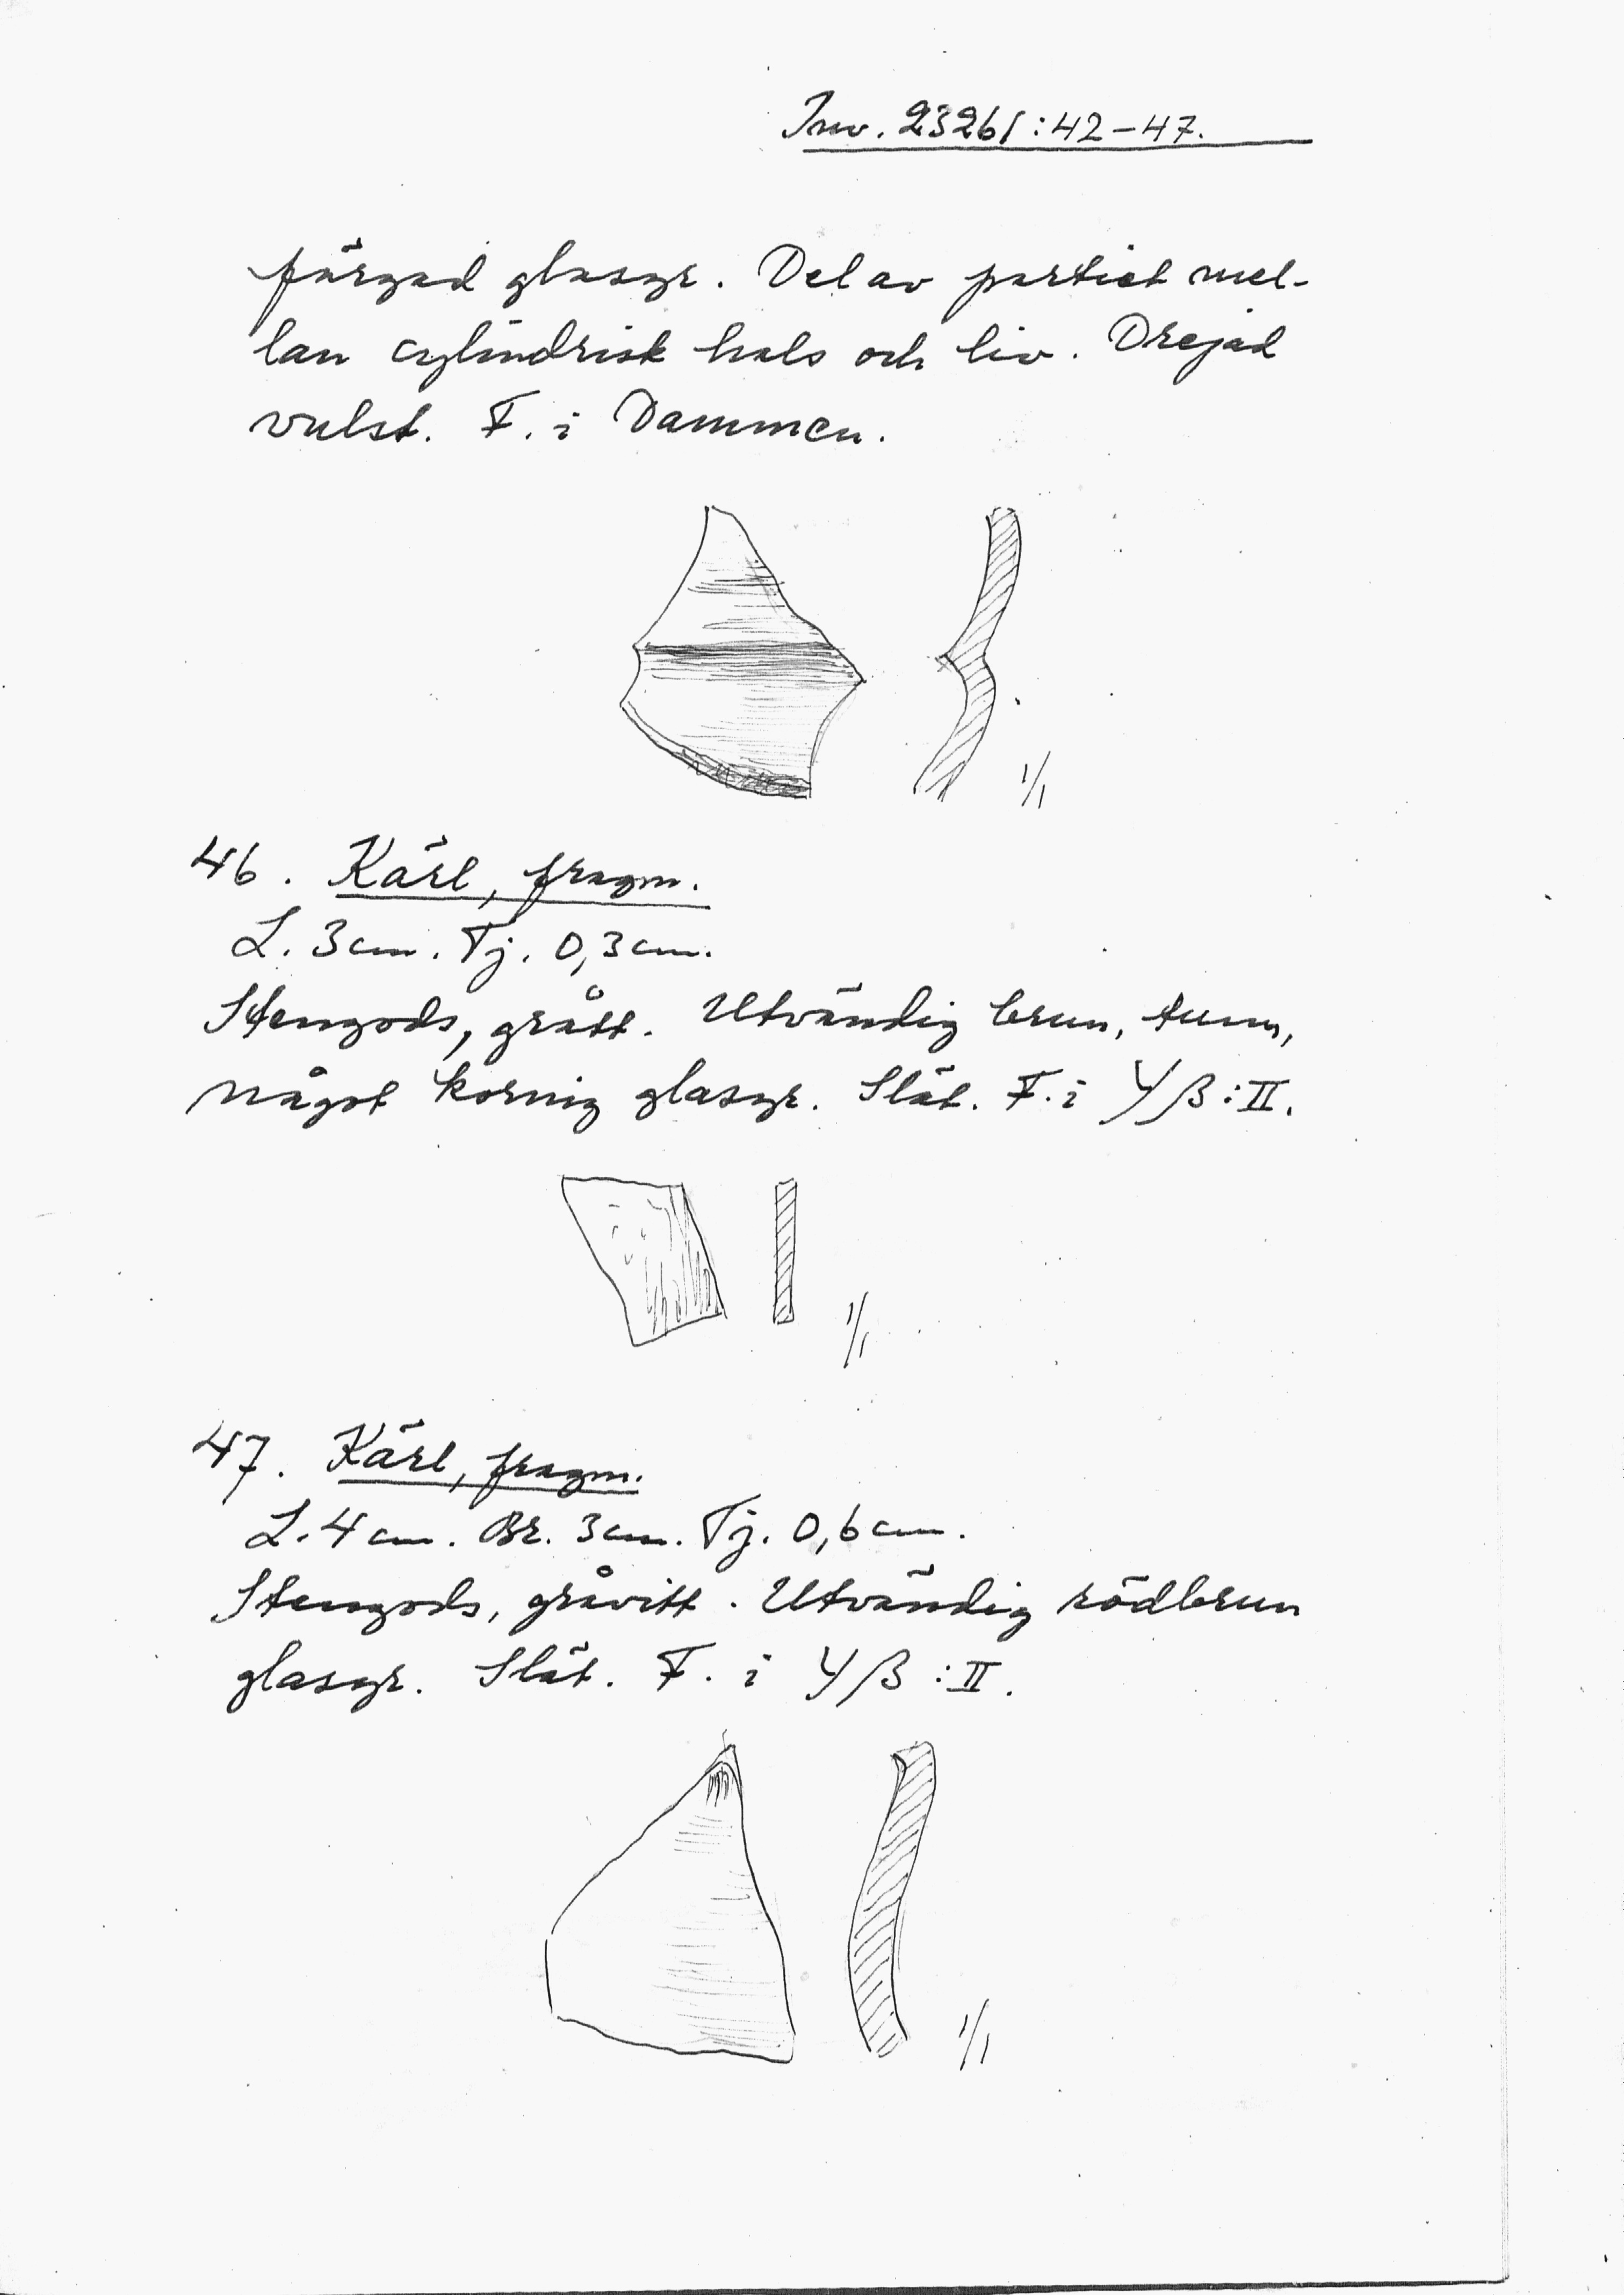 Inv. 23261:42-47.
färgad glasyr. Del av partiet mel-
lan cylindrisk hals och liv. Drejad
vulst. F. i Dammen.
1/1
46. Kärl, fragm.
L. 3 cm. Tj. 0,3 cm.
Stengods, grått. Utvändig brun, tunn,
något kornig glasyr. Slät. F. i Yβ:II.
1/1
47. Kärl, fragm.
L. 4 cm. Br. 3 cm. Tj. 0,6 cm.
Stengods, gråvitt. Utvändig rödbrun
glasyr. Slät. F. i Yβ:II.
1/1